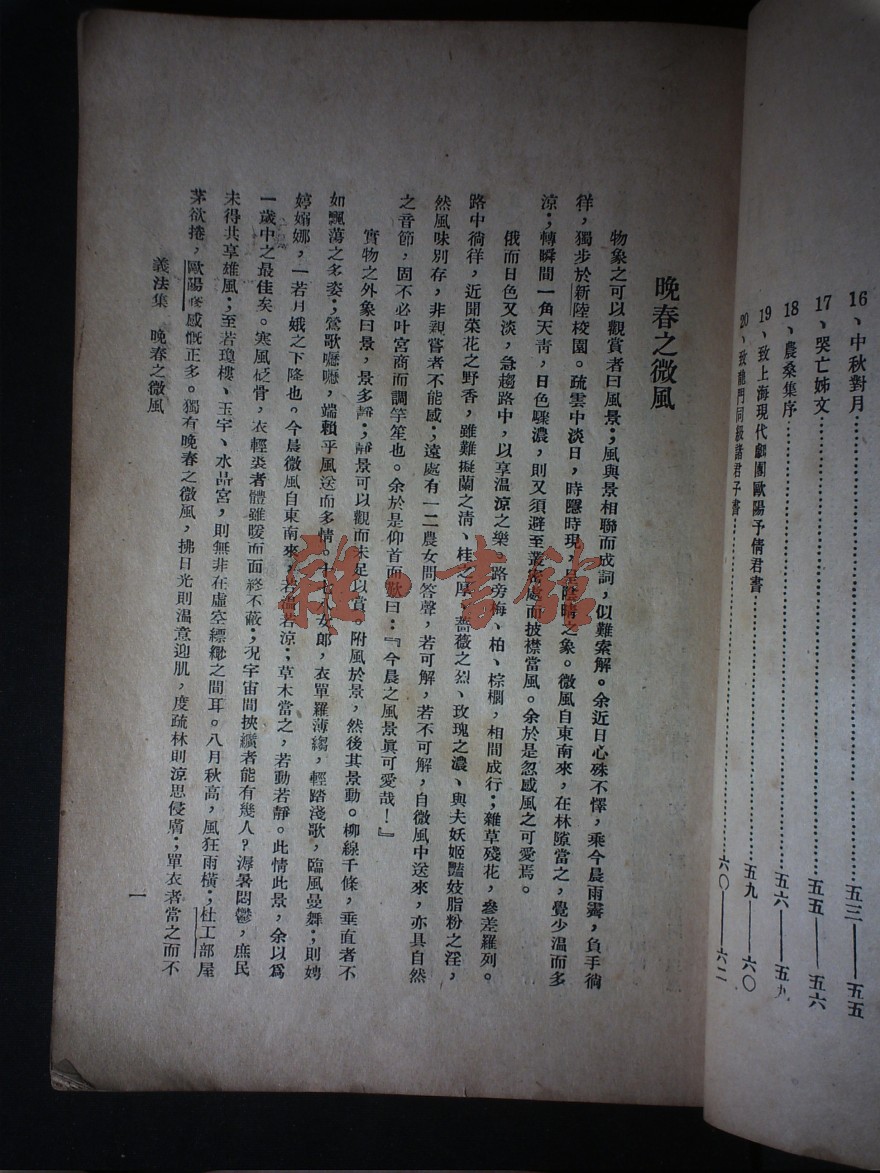 16、中秋對月……五三——五五
17、哭亡姊文……五五——五六
18、農桑集序……五六——五九
19、致上海現代劇團歐陽予倩君書……五九——六〇
20、致龍門同級諸君子書……六〇——六二
晚春之微風
物象之可以觀賞者曰風景；風與景相聯而成詞，似難索解。余近日心殊不懌，乘今晨雨霽，負手徜
徉，獨步於新陸校園。疏雲中淡日，時隱時現，呈陰晴之象。微風自東南來，在林隙當之，覺少溫而多
涼；轉瞬間一角天靑，日色驟濃，則又須避至叢密處而披襟當風。余於是忽感風之可愛焉。
俄而日色又淡，急趨路中，以享溫涼之樂。路旁梅、柏、棕櫚，相間成行；雜草殘花，參差羅列。
路中徜徉，近聞菜花之野香，雖難擬蘭之淸、桂之厚、薔薇之烈、玫瑰之濃、與夫妖姬豔妓脂粉之淫，
然風味別存，非親嘗者不能感；遠處有一二農女問答聲，若可解，若不可解，自微風中送來，亦具自然
之音節，固不必叶宮商而調竽笙也。余於是仰首而歎曰：『今晨之風景眞可愛哉！』
實物之外象曰景，景多靜；靜景可以觀而未足以賞。附風於景，然後其景動。柳線千條，垂直者不
如飄蕩之多姿；鶯歌嚦嚦，端賴乎風送而多情。十七八女郎，衣單羅薄縐，輕踏淺歌，臨風曼舞；則娉
婷嫋娜，一若月娥之下降也。今晨微風自東南來，若溫若涼；草木當之，若動若靜。此情此景，余以爲
一歲中之最佳矣。寒風砭骨，衣輕裘者體雖暖而面終不蔽；況宇宙間挾纊者能有幾人？溽暑悶鬱，庶民
未得共享雄風；至若瓊樓、玉宇、水晶宮，則無非在虛空縹緲之間耳。八月秋高，風狂雨橫；杜工部屋
茅欲捲，歐陽修感慨正多。獨有晚春之微風，拂日光則溫意迎肌，度疏林則涼思侵膚；單衣者當之而不
義法集　晚春之微風
一
雜·書館